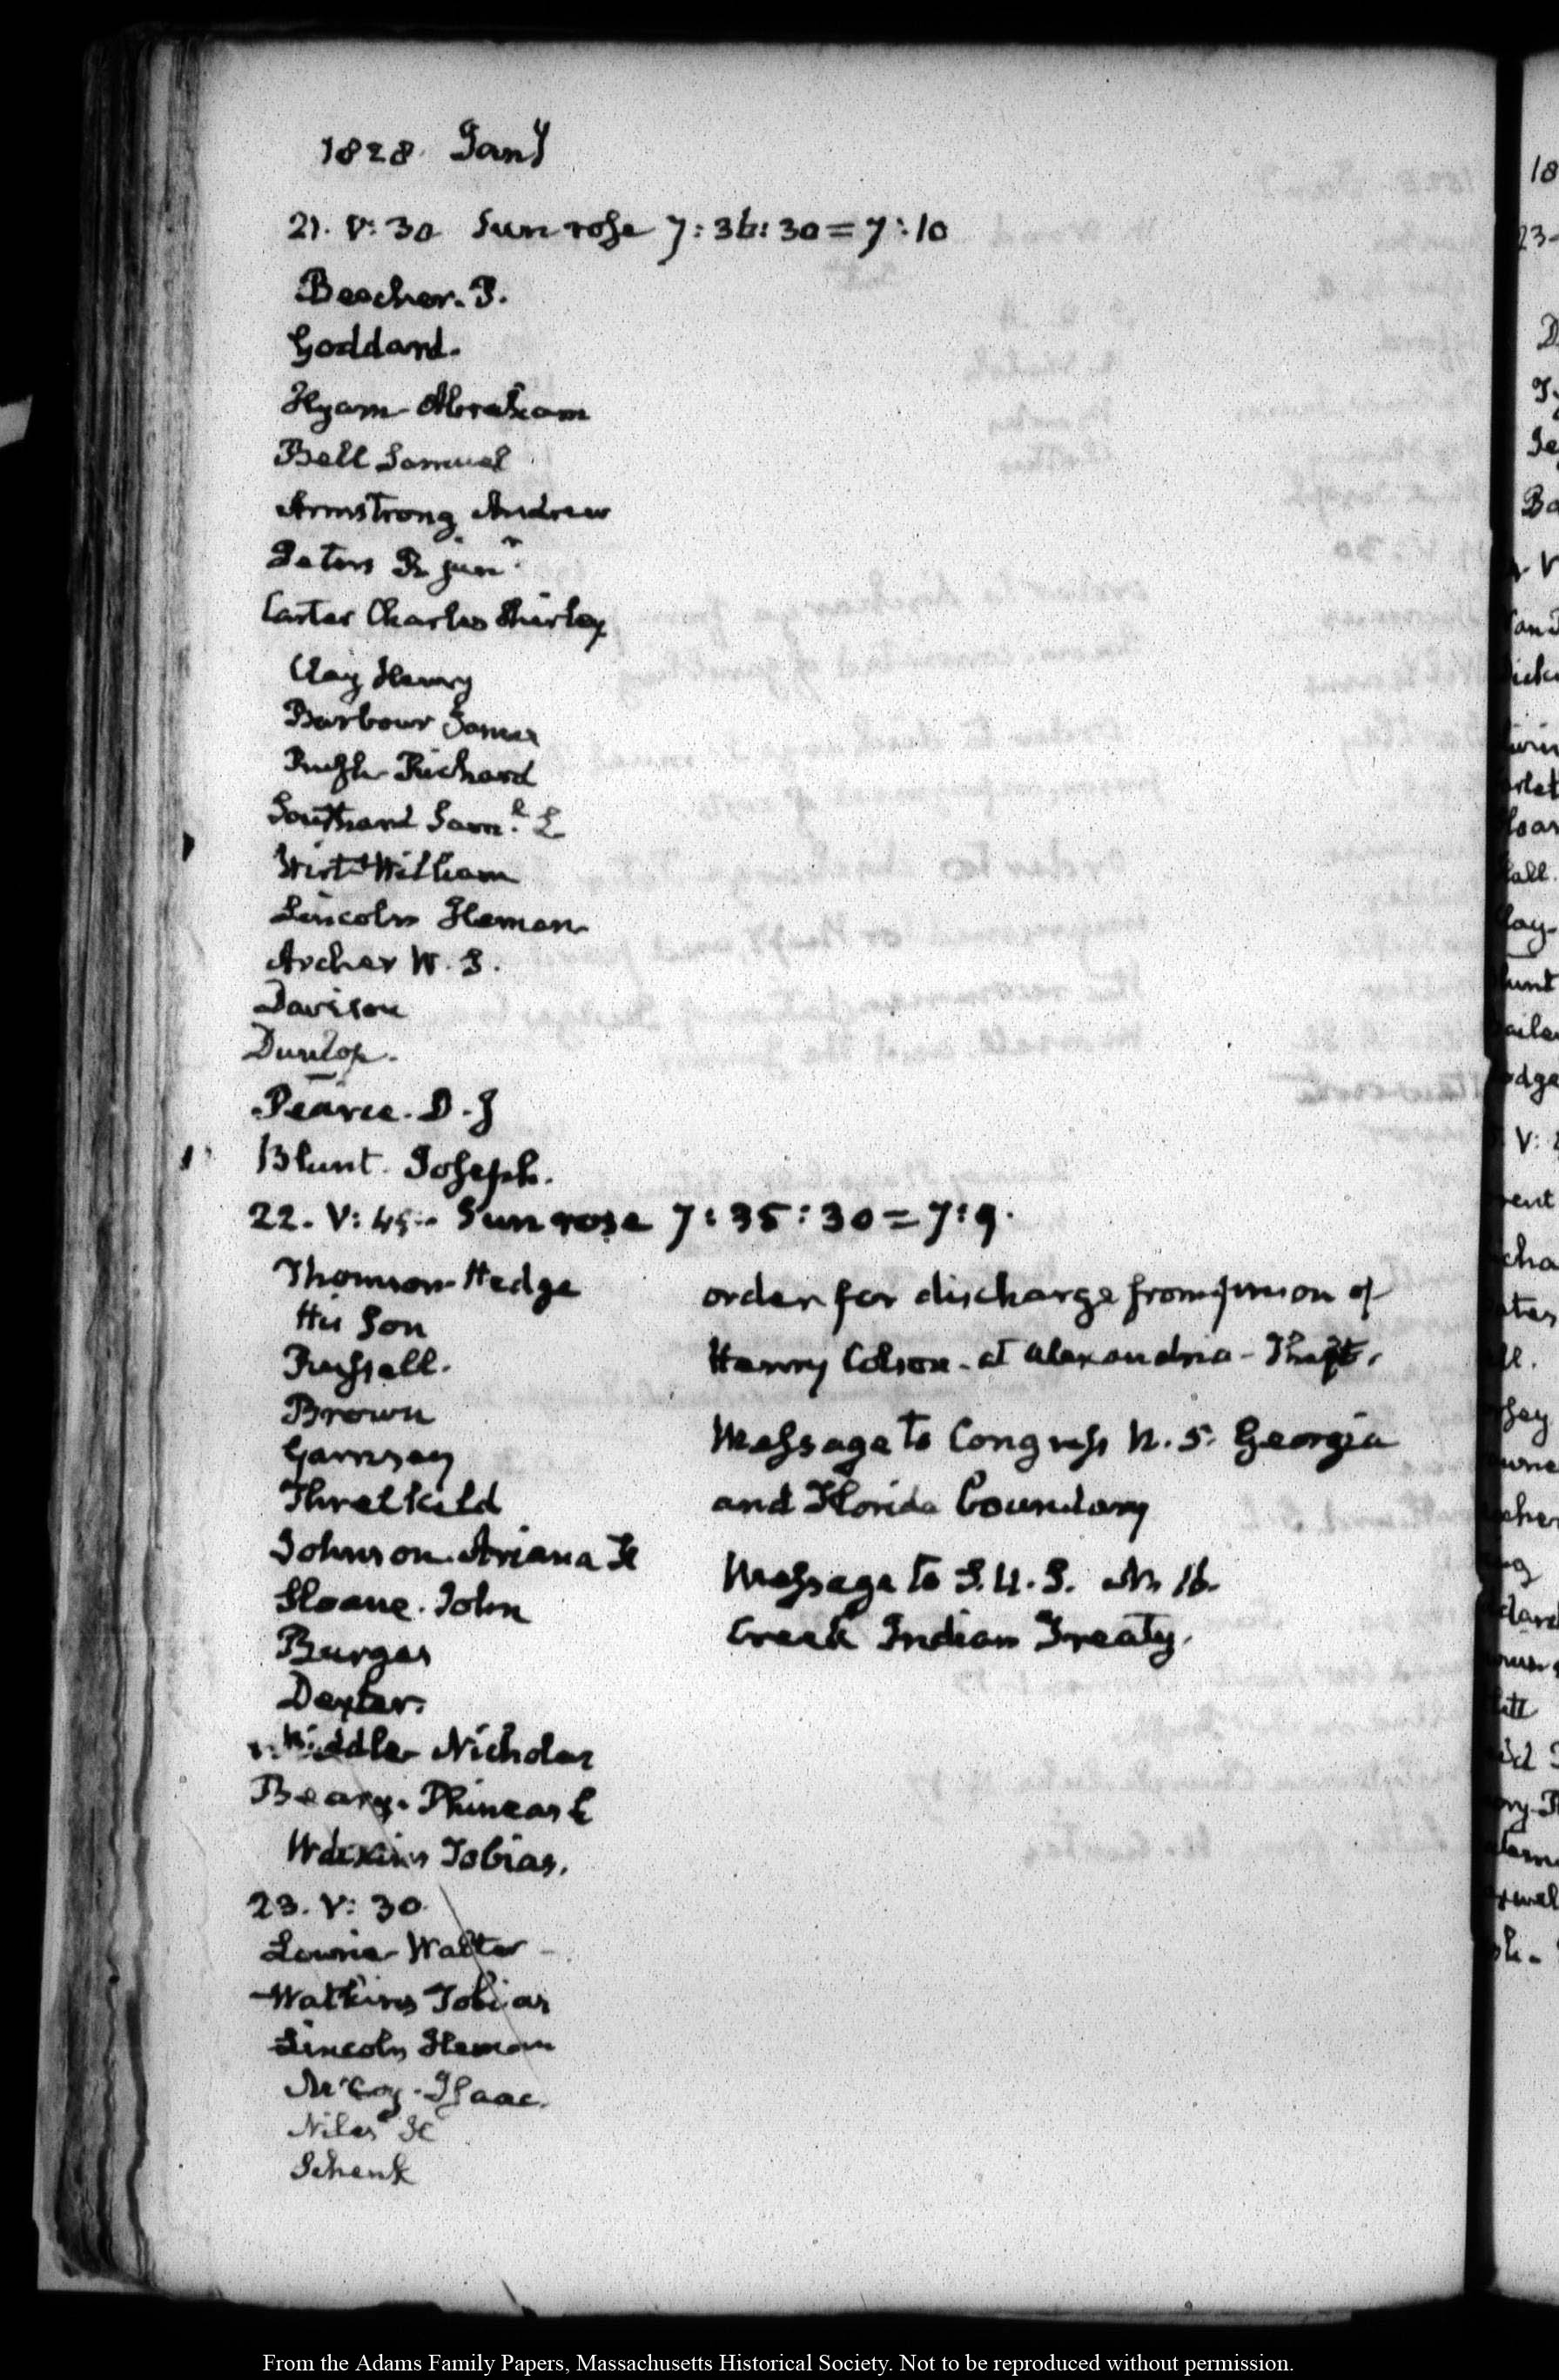 1828 Jany
21. V: 30 Sun rose 7: 36: 30 = 7: 10
Beecher. P.
Goddard.
Hyam Abraham
Bell Samuel
Armstrong Andrew
Peters R. junr
Carter Charles Shirley
Clay Henry
Barbour James
Rush Richard
Southard Saml. L
Wirt William
Lincoln Heman
Archer W. S.
Davison
Dunlop.
Pearce. D. J
Blunt Joseph.
22. V: 45. Sun rose 7: 35: 30 = 7: 9.
Thomson Hedge
His Son
Russell.
Brown
Garnsey
Threlkeld
Johnson. Ariana
Sloane. John
Burges
Dexter.
Biddle Nicholas
Phineas
Watkins Tobias.
order for discharge from prison of
Henry Colson. at Alexandria - Theft.
Message to Congress N. 5. Georgia
and Florida Boundary
Message to S.U.S. N. 16.
Creek Indian Treaty.
23. V: 30
Lowrie Walter
Watkins Tobias
Lincoln Heman
McCoy. Isaac.
Niles H
Schenk
18
23
From the Adams Family Papers, Massachusetts Historical Society. Not to be reproduced without permission.